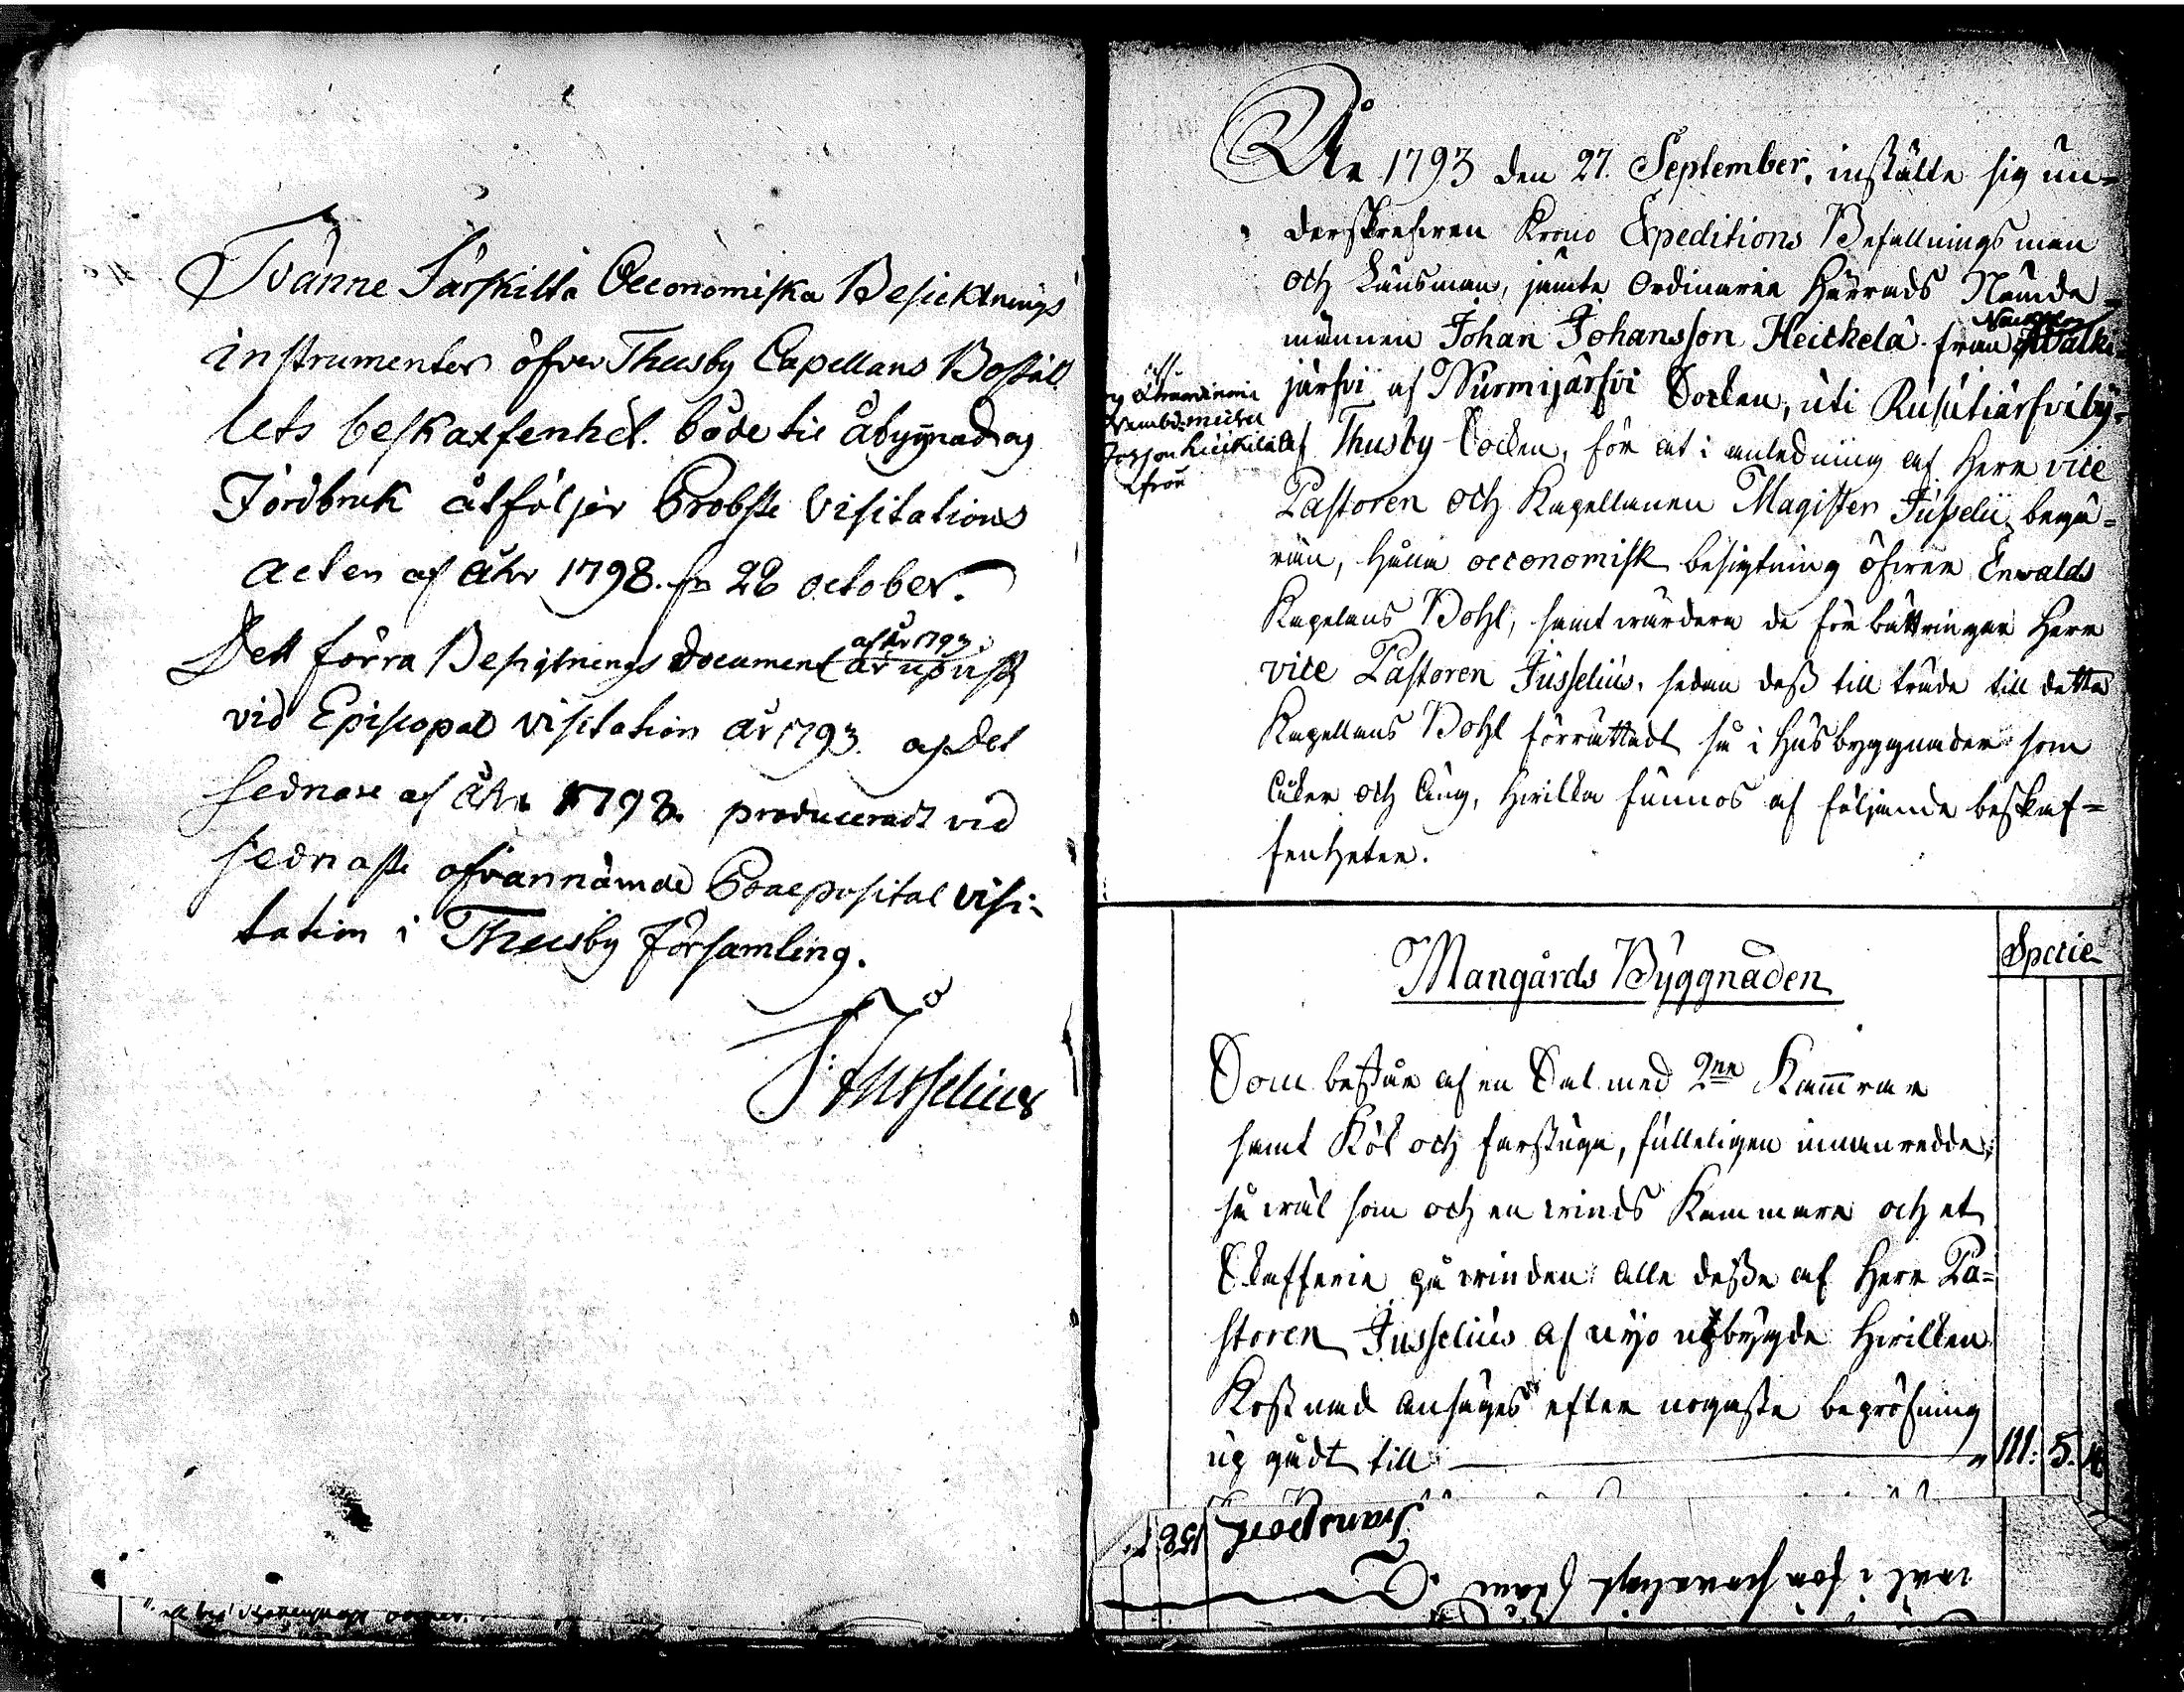 Tvänne Särskilta Oeconomiska Besicktnings
instrumenter öfver Thusby Capellans Boställ
lets beskaxfenhet. både til åbyggnad og
Jordbruk åtföljer Probste Visitations
acten af Åhr 1798. 28 october.
af År 1793
Dett förra Besigtnings document är
vid Episcopal visitation år 1793. og det
sednare af Åhr 1798. produceradt vid
sednaste ofvannämde Praeposital visi-
tation i Thusby församling.
J: Jusselius
År 1793 den 27. September, instälte sig un-
derskrefven Krono Expeditions Befallningsman
och Länsman, jämte Ordinarie Härads Nämde-
männen Johan Johansson Heickelä från Walki-
järfvi af Nurmijärfvi Socken, uti Rusutjärfvi by
af Thusby Socken, för at i anledning af Herr vice
Pastoren och Kapellanen Magister Jusselii begä-
ran, hålla oeconomisk besigtning öfver Enwalds
Kapelans Bohl, samt wärdera de förbättringar Herr
vice Pastoren Jusselius, sedan dess tillträde till detta
Kapellans Bohl förrättadt så i Husbyggnader som
åker och äng, hvilka funnos af följande beskaf-
fenheter.
Mangårds Byggnaden
Specie
Som består af en Sal med 2ne Kamrar
samt Kök och farstuga, fulleligen innanredde,
så wäl som och en winds Kammare och et
Skafferie på winden. alla desse af Herr Pa-
storen Jusselius af nyo upbygde hvilken
Kostnad anseges efter nogaste bepröfning
up gådt till 111. 5.
Transport 158